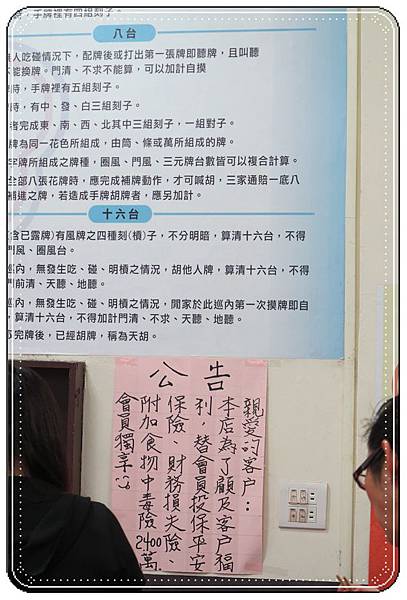 手牌裡有四組刻子。
八台
人吃碰情況下，配牌後或打出第一張牌即聽牌，且叫聽
能換牌。門清、不求不能算，可以加計自摸
時，手牌裡有五組刻子。
時，有中、發、白三組刻子。
者完成東、南、西、北其中三組刻子，一組對子。
牌為同一花色所組成，由筒、條或萬所組成的牌。
字牌所組成之牌種，圈風、門風、三元牌台數皆可以複合計算。
全部八張花牌時，應完成補牌動作，才可喊胡，三家通賠一底八
補進之牌，若造成手牌胡牌者，應另加計。
十六台
含已露牌)有風牌之四種刻(槓)子，不分明暗，算清十六台，不得
門風、圈風台。
巡內，無發生吃、碰、明槓之情況，胡他人牌，算清十六台，不得
門前清、天聽、地聽。
巡內，無發生吃、碰、明槓之情況，閒家於此巡內第一次摸牌即自
，算清十六台，不得加計門清、不求、天聽、地聽。
完牌後，已經胡牌，稱為天胡。
公告
親愛的客戶：
本店為了顧及客戶福
利，替會員投保平安
保險、財務損失險、
附加食物中毒險2400萬、
會員獨享